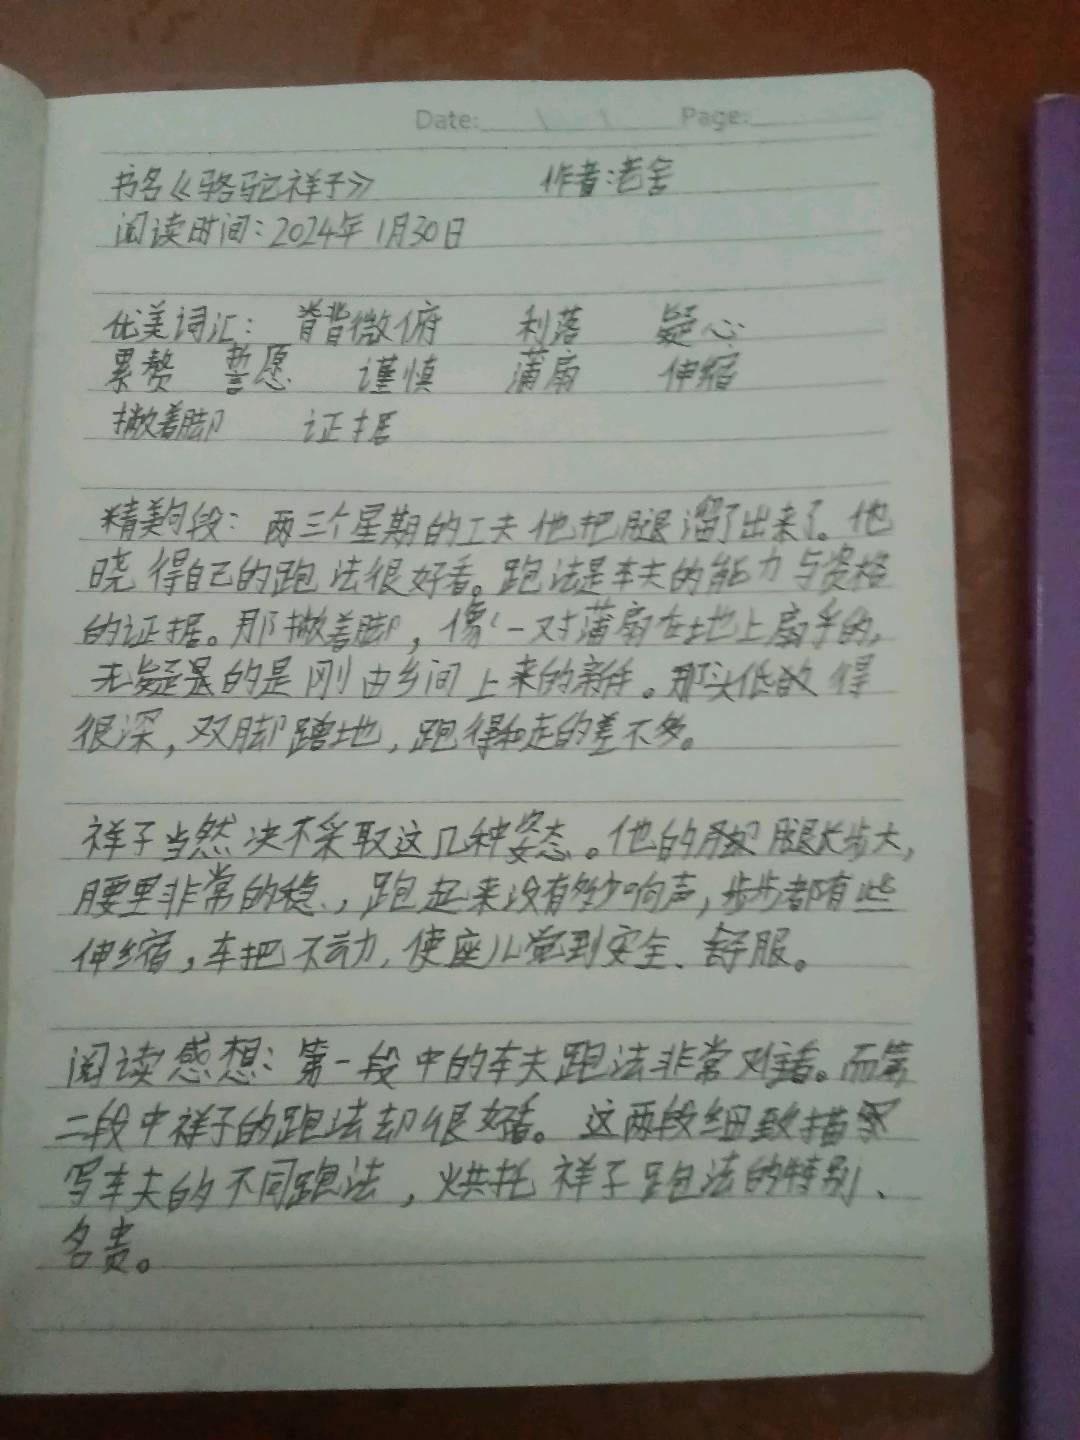 Date: \ \ Page:
书名《骆驼祥子》 作者:老舍
阅读时间:2024年1月30日
优美词汇: 脊背微俯 利落 疑心
累赘 誓愿 谨慎 蒲扇 伸缩
撇着脚 证据
精美句段: 两三个星期的工夫他把腿溜了出来了。他
晓得自己的跑法很好看。跑法是车夫的能力与资格
的证据。那撇着脚,像一对蒲扇在地上扇乎的,
无疑是的是刚由乡间上来的新手。那头低的得
很深,双脚蹭地,跑得和走的差不多。
祥子当然决不采取这几种姿态。他的腿长步大,
腰里非常的稳,跑起来没有多少响声,步步都有些
伸缩,车把不动,使座儿觉到安全、舒服。
阅读感想:第一段中的车夫跑法非常难看。而第
二段中祥子的跑法却很好看。这两段细致描
写车夫的不同跑法,烘托祥子跑法的特别、
名贵。